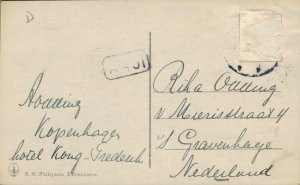 D
Rodding
Kopenhagen
hotel Kong Frederik
Rika Odding
v Mierisstraat 4
's Gravenhage
Nederland
N. N. Philipsen, Kobenhavn.